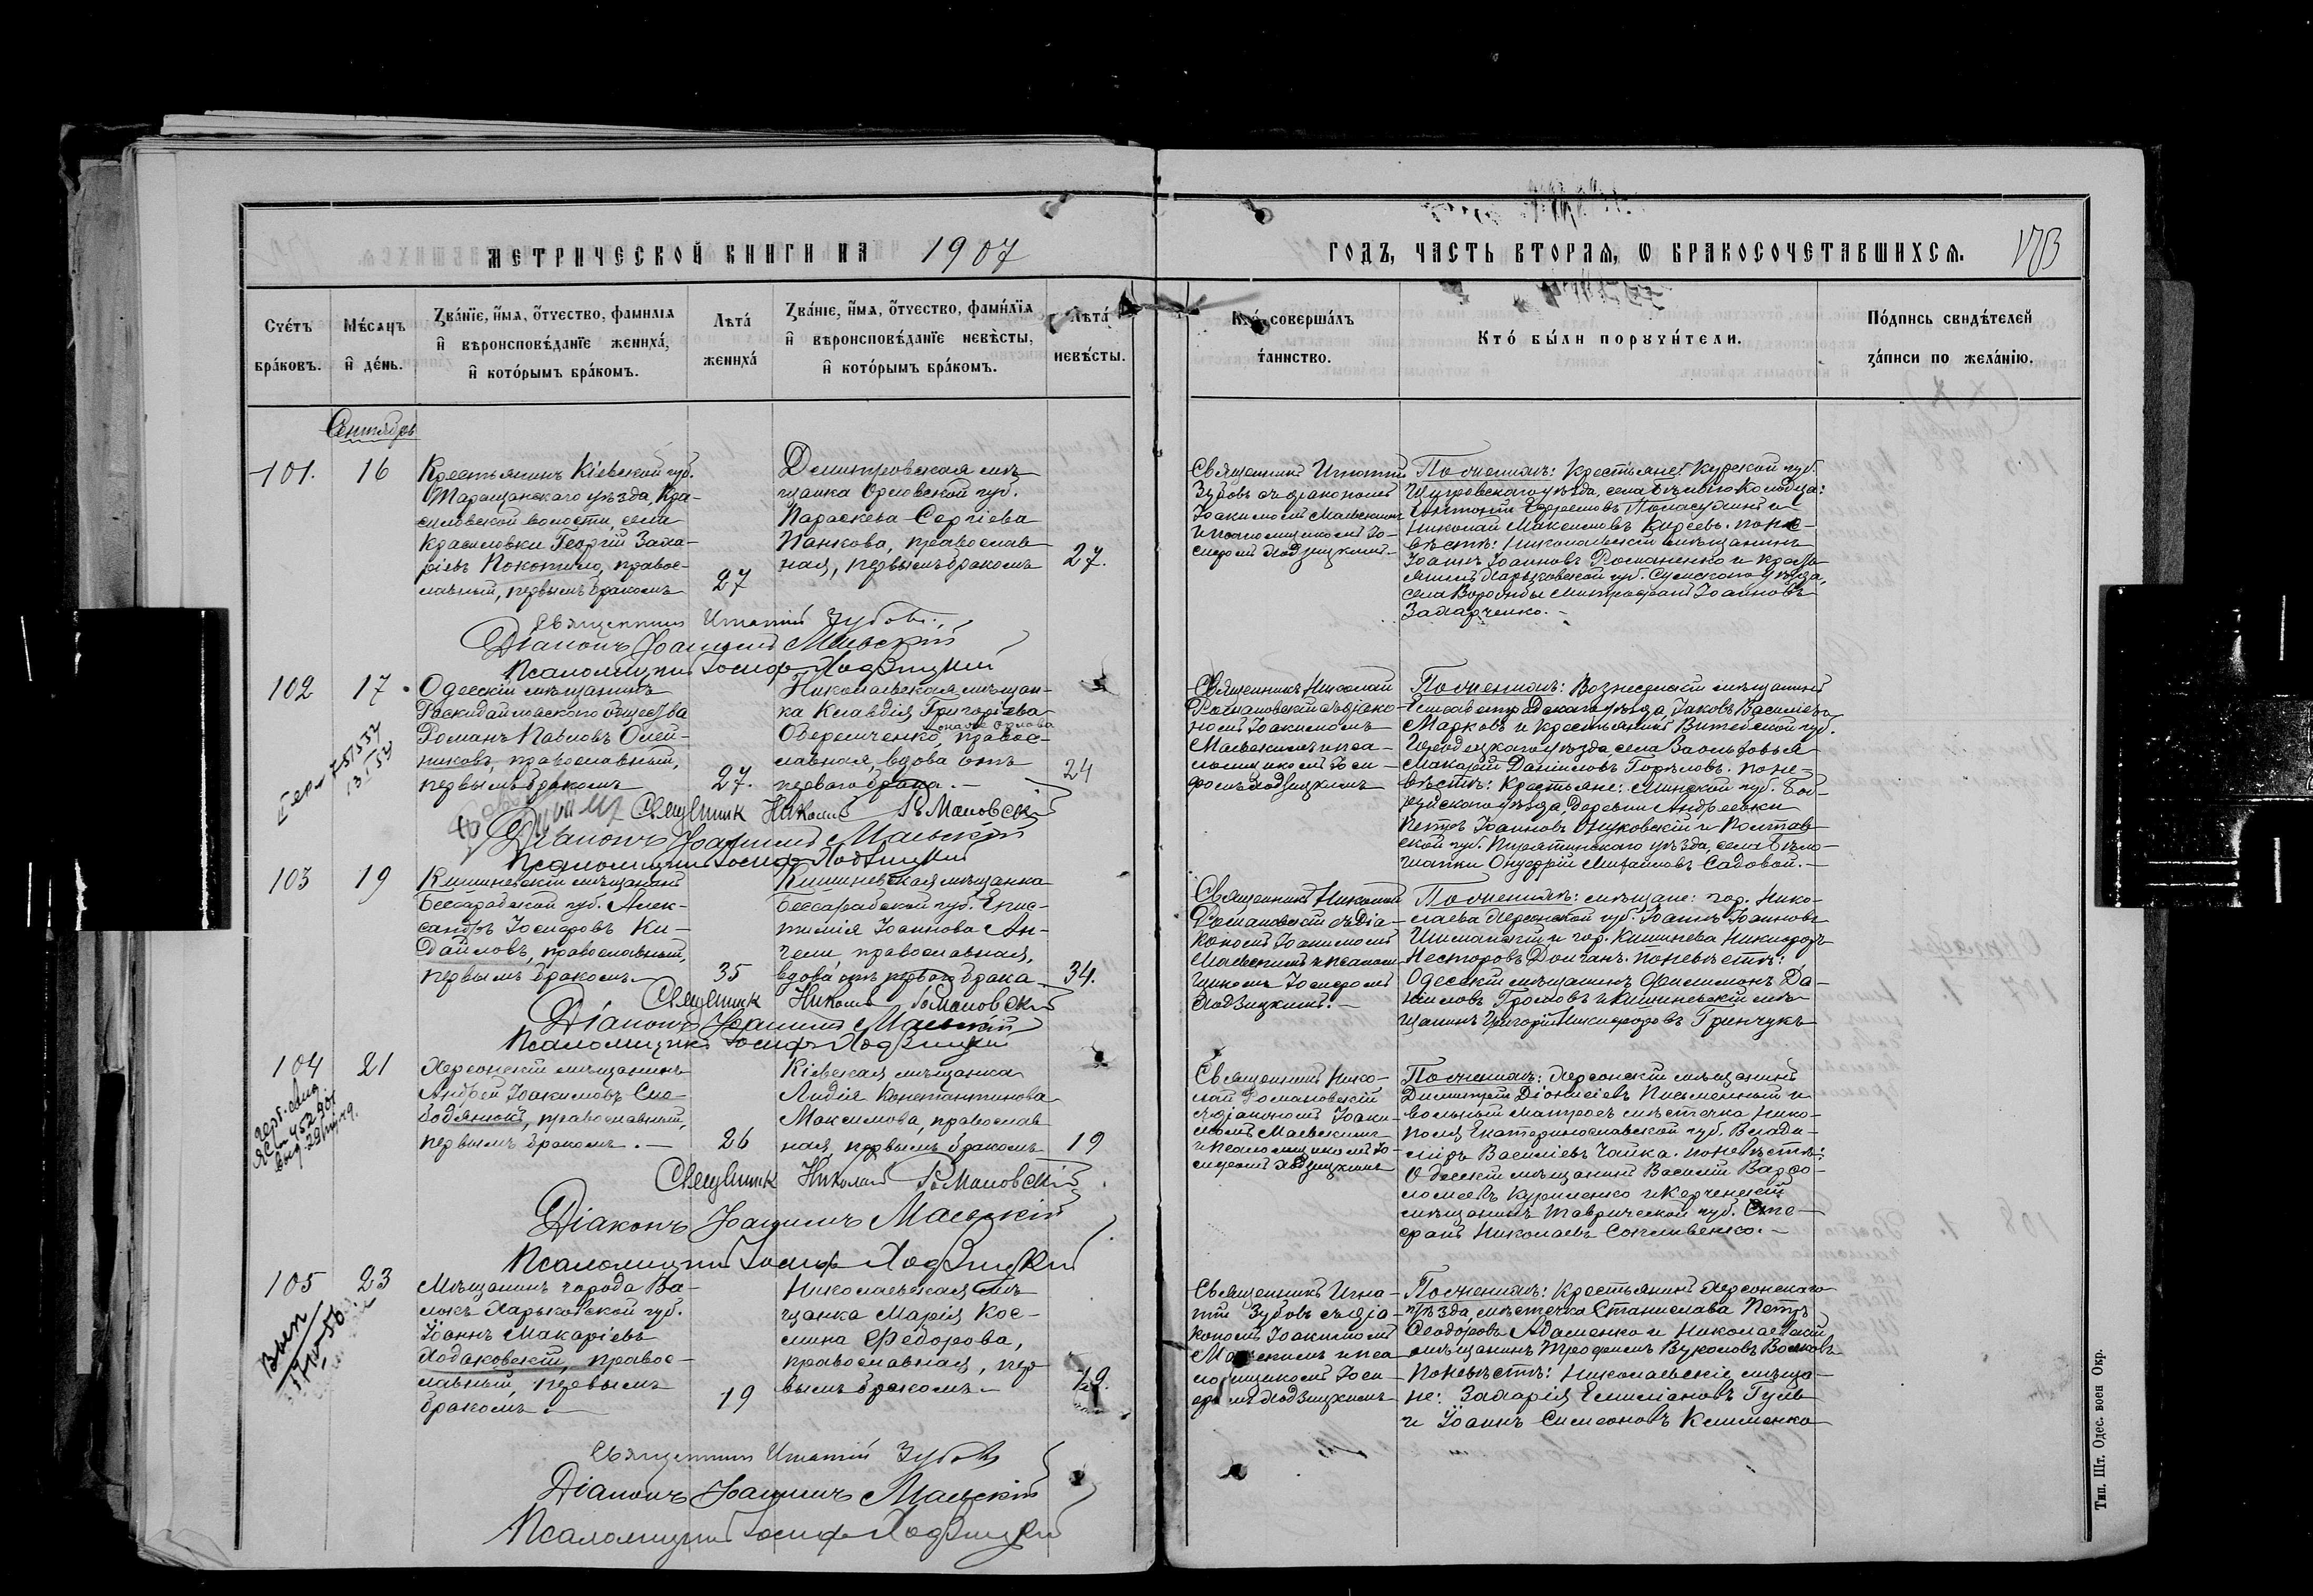 МЕТРИЧЕСКОЙ КНИГИ НА 1907
ГОДЪ, ЧАСТЬ ВТОРАЯ, Ѡ БРАКОСОЧЕТАВШИХСЯ.
173
Счетъ браковъ.
Мѣсяцъ и день.
Званіе, имя, отчество, фамилія
и вѣроисповѣданіе жениха,
и которымъ бракомъ.
Лѣта жениха
Званіе, имя, отчество, фамилія
и вѣроисповѣданіе невѣсты,
и которымъ бракомъ.
Лѣта невѣсты.
Кто совершалъ таинство.
Кто были поручители.
Подпись свидѣтелей
записи по желанію.
Сентябрь
101. 16
Крестьянинъ Кіевской губ.
Таращанскаго уѣзда, Кра-
силовской волости, села
Красиловки Георгій Заха-
ріевъ Покотило, правос-
лавный, первымъ бракомъ
27
Димитровская мѣ-
щанка Орловской губ.
Параскева Сергіева
Панкова, православ-
ная, первымъ бракомъ
27.
Священникъ Игнатій
Зубовъ съ діакономъ
Іоакимомъ Маевскимъ
и псаломщикомъ Іо-
сифомъ Ходзицкимъ.
По женихѣ: Крестьяне: Курской губ.
Щигровскаго уѣзда, села Бѣлаго Колодца:
Николай Максимовъ Кирѣевъ. По не-
вѣстѣ: Николаевскій мѣщанинъ
Іоаннъ Іоанновъ Романенко и кресть-
янинъ Харьковской губ. Сумскаго уѣзда,
села Ворожбы Митрофанъ Іоанновъ
Захарченко.
Священникъ Игнатій Зубовъ
Діаконъ Іоакимъ Маевскій
Псаломщикъ Іосифъ Ходзицкій
102 17
Одесскій мѣщанинъ
Раскидайловскаго общества
Романъ Павловъ Олей-
никовъ, православный,
первымъ бракомъ
27.
Николаевская мѣщан-
ка Клавдія Григорьева
онаже Орлова
Оберемченко, правос-
лавная, вдова отъ
перваго брака.
24
Священникъ Николай
Романовскій съ діако-
номъ Іоакимомъ
Маевскимъ и пса-
ломщикомъ Іоси-
фомъ Ходзицкимъ
По женихѣ: Вознесенскій мѣщанинъ
Елисаветградскаго уѣзда, Іаковъ Василіевъ
Марковъ и крестьянинъ Витебской губ.
Городецкаго уѣзда села
Макарій Даниловъ Горѣловъ. По не-
вѣстѣ: Крестьяне: Минской губ. Боб-
руйскаго уѣзда, деревни Андреевки
Петръ Іоанновъ и Полтав-
ской губ. Пирятинскаго уѣзда, села Бѣло-
шапки Онуфрій Михайловъ Садовой.
Священникъ Николай Романовскій
Діаконъ Іоакимъ Маевскій
Псаломщикъ Іосифъ Ходзицкій
103 19
Кишиневскій мѣщанинъ
Бессарабской губ. Алек-
сандръ Іосифовъ Ки-
первымъ бракомъ
35
Кишиневская мѣщанка
Бессарабской губ. Епис-
тимія Іоаннова Ан-
гели, православная,
вдова отъ перваго брака
34.
Священникъ Николай
Романовскій съ діа-
кономъ Іоакимомъ
Маевскимъ и псалом-
щикомъ Іосифомъ
Ходзицкимъ.
По женихѣ: мѣщане: гор. Нико-
лаева Херсонской губ. Іоаннъ Іоанновъ
Шиманскій и гор. Кишинева Никифоръ
Несторовъ Долганъ. По невѣстѣ:
Одесскій мѣщанинъ Филимонъ Да-
ніиловъ Громовъ и Кишиневскій мѣ-
щанинъ Григорій Никифоровъ Гринчукъ
Священникъ Николай Романовскій
Діаконъ Іоакимъ Маевскій
Псаломщикъ Іосифъ Ходзицкій
104 21
Херсонскій мѣщанинъ
Андрей Іоакимовъ Сло-
бодяной, православный,
первымъ бракомъ.
26
Кіевская мѣщанка
Лидія Константинова
Максимова, православ-
ная, первымъ бракомъ
19
Священникъ Нико-
лай Романовскій
съ діакономъ Іоаки-
момъ Маевскимъ
и псаломщикомъ Іо-
сифомъ Ходзицкимъ
По женихѣ: Херсонскій мѣщанинъ
Димитрій Діонисіевъ Письменный и
вольный матросъ мѣстечка Нико-
поля Екатеринославской губ. Влади-
міръ Василіевъ Чайка. По невѣстѣ:
Одесскій мѣщанинъ Василій Варфо-
ломеевъ Куриленко и Керченскій
мѣщанинъ Таврической губ. Сте-
фанъ Николаевъ Сопливенко.
Священникъ Николай Романовскій
Діаконъ Іоакимъ Маевскій
Псаломщикъ Іосифъ Ходзицкій
105 23
Мѣщанинъ города Ва-
локъ Харьковской губ.
Іоаннъ Макаріевъ
Ходаковскій, правос-
лавный, первымъ
бракомъ.
19
Николаевская мѣ-
щанка Марія Кос-
мина Федорова,
православная, пер-
вымъ бракомъ.
19.
Священникъ Игна-
тій Зубовъ съ діа-
кономъ Іоакимомъ
Маевскимъ и пса-
ломщикомъ Іоси-
фомъ Ходзицкимъ
По женихѣ: Крестьянинъ Херсонскаго
уѣзда, мѣстечка Станислава Петръ
Ѳеодоровъ Адаменко и Николаевскій
мѣщанинъ Трофимъ Вуколовъ Волковъ
По невѣстѣ: Николаевскіе мѣща-
не: Захарія Емиліановъ Гуль
и Іоаннъ Симеоновъ Клименко
Священникъ Игнатій Зубовъ
Діаконъ Іоакимъ Маевскій
Псаломщикъ Іосифъ Ходзицкій
Тип. Шт. Одес. воен Окр.